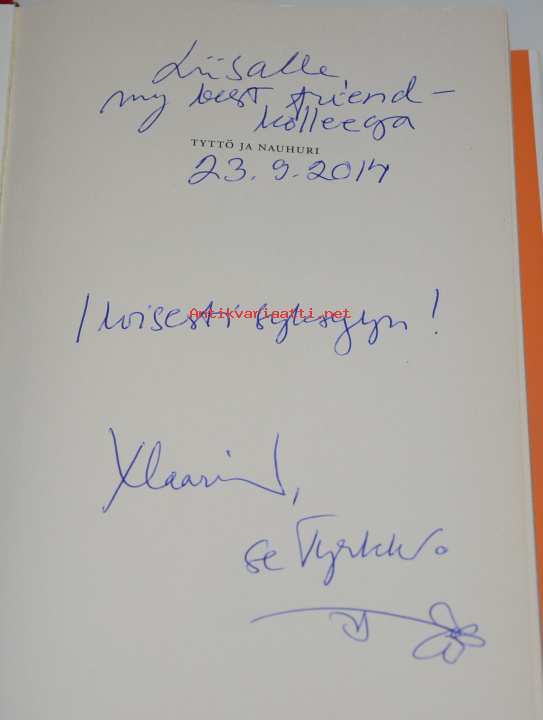 Liisalle,
my best friend-
kolleega
TYTTÖ JA NAUHURI
23.9.2014
Iloisesti syksyyn!
Antikvariaatti.net
Maarit,
se Tyrkkö.